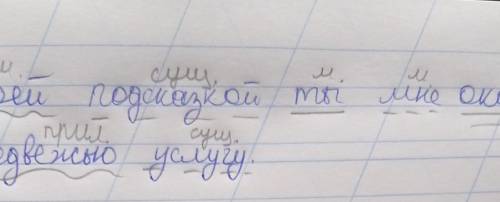 м. сущ. м. м
ей подсказкой ты мне ока
прил. сущ.
едвежью услугу.